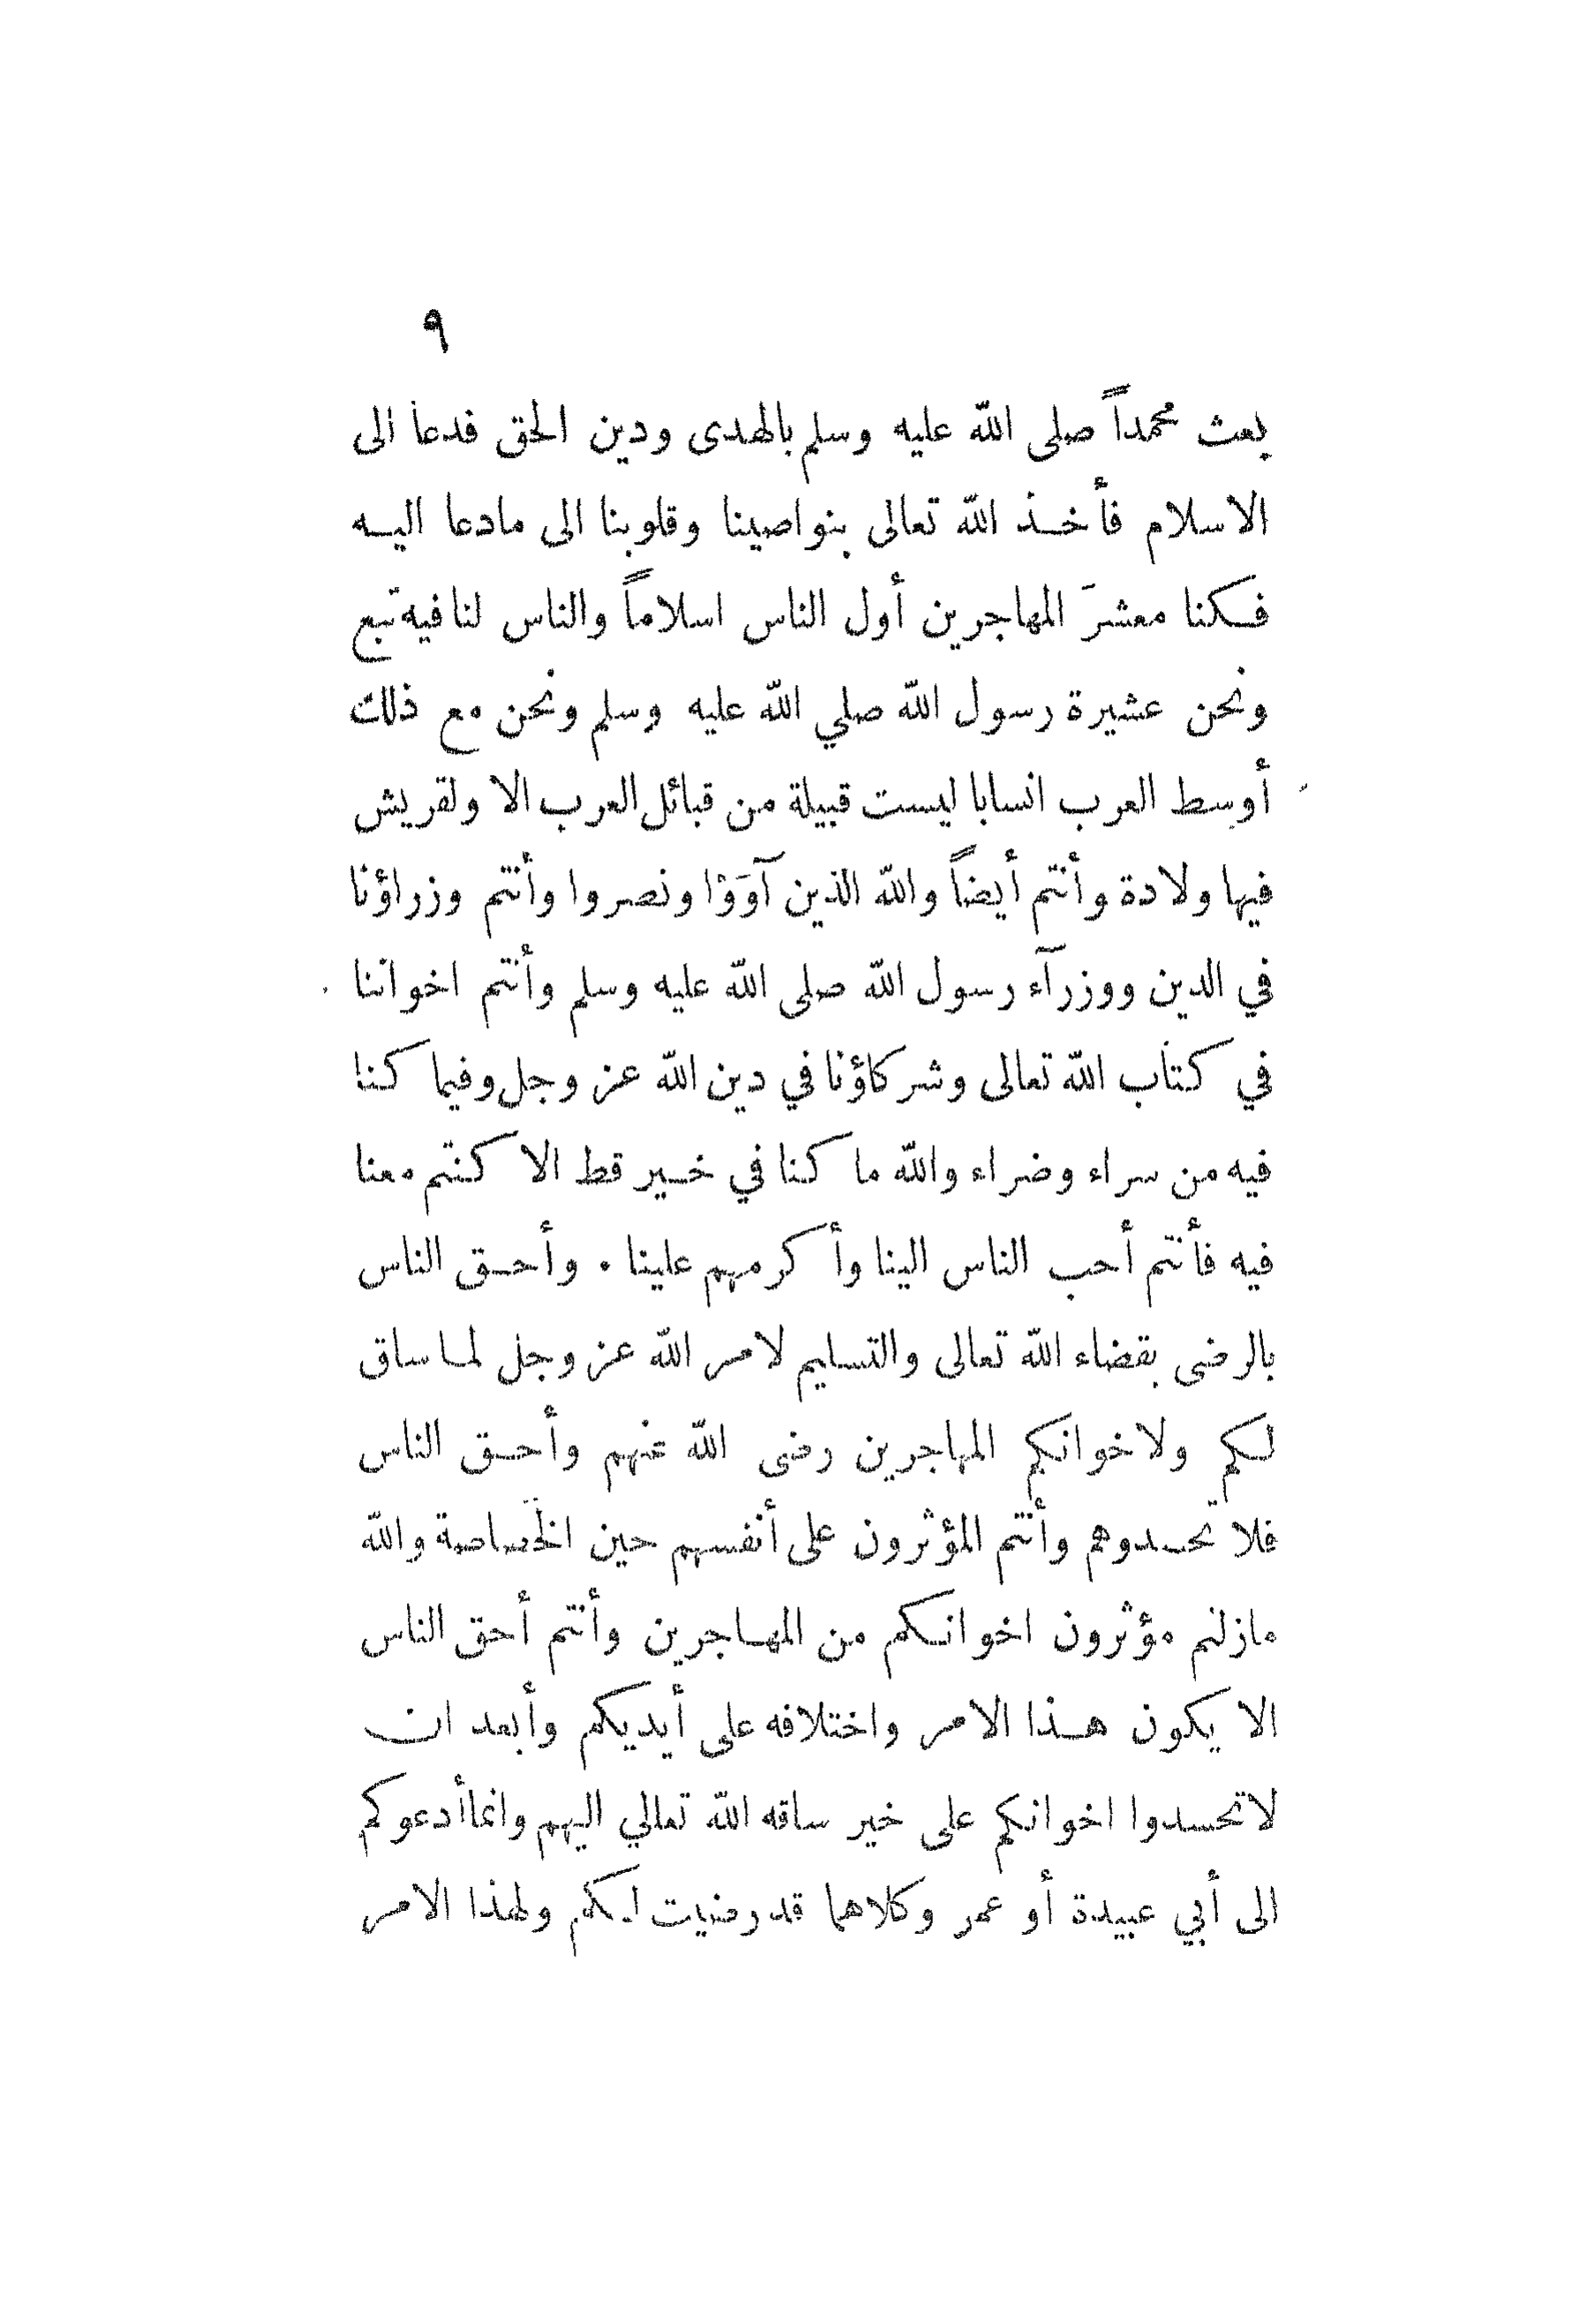 ٩
بعث محمداً صلى الله عليه وسلم بالهدى ودين الحق فدعا الى
الاسلام فأخذ الله تعالى بنواصينا وقلوبنا الى مادعا اليه
فكنا معشرَ المهاجرين أول الناس اسلاماً والناس لنا فيه تبع
ونحن عشيرة رسول الله صلي الله عليه وسلم ونحن مع ذلك
أوسط العرب انسابا ليست قبيلة من قبائل العرب الا ولقريش
فيها ولادة وأنتم أيضاً والله الذين آوَوْا ونصروا وأنتم وزراؤنا
في الدين ووزرآء رسول الله صلى الله عليه وسلم وأنتم اخواننا
في كتاب الله تعالى وشركاؤنا في دين الله عز وجل وفيما كنا
فيه من سراء وضراء والله ما كنا في خير قط الا كنتم معنا
فيه فأنتم أحب الناس الينا وأكرمهم علينا . وأحق الناس
بالرضى بقضاء الله تعالى والتسليم لامر الله عز وجل لما ساق
لكم ولاخوانكم المهاجرين رضى الله عنهم وأحق الناس
فلا تحسدوهم وأنتم المؤثرون على أنفسهم حين الخصاصة والله
مازلتم مؤثرون اخوانكم من المهاجرين وأنتم أحق الناس
الا يكون هذا الامر واختلافه على أيديكم وأبعد ان
لاتحسدوا اخوانكم على خير ساقه الله تعالي اليهم وانما أدعوكم
الى أبي عبيدة أو عمر وكلاهما قد رضيت لكم ولهذا الامر